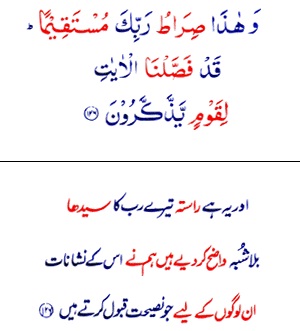 وَهٰذَا صِرَاطُ رَبِّكَ مُسْتَقِيْمًا ؕ
قَدْ فَصَّلْنَا الْاٰيٰتِ
لِقَوْمٍ يَّذَّكَّرُوْنَ ﴿۱۲۶﴾
اور یہ ہے راستہ تیرے رب کا سیدھا
بلاشُبہ واضح کر دیے ہیں ہم نے اس کے نشانات
ان لوگوں کے لیے جو نصیحت قبول کرتے ہیں ﴿۱۲۶﴾